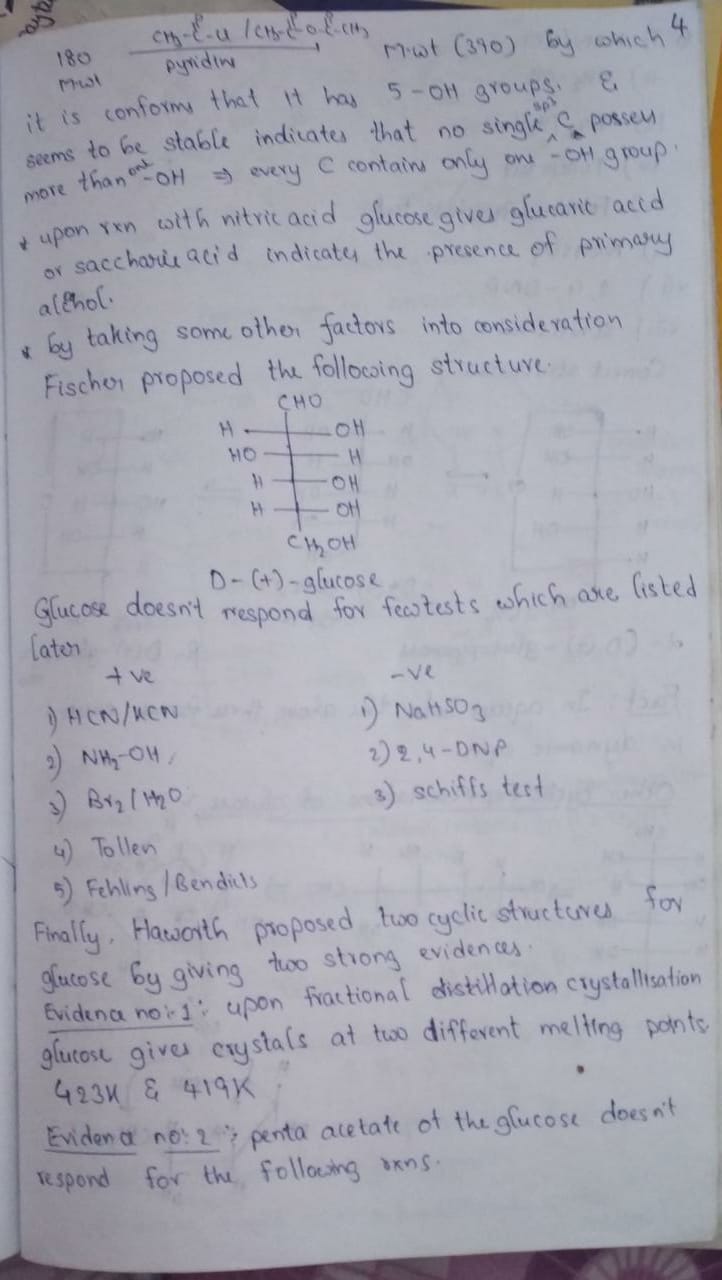 4
180 CH3-C-Cl / CH3-C-O-C-CH3 M.wt (390) by which
M.wt pyridine
it is conforms that it has 5-OH groups. &
seems to be stable indicates that no single sp3 C possess
more than one -OH ⇒ every C contains only one -OH group.
* upon rxn with nitric acid glucose gives glucaric acid
or saccharic acid indicates the presence of primary
alcohol.
* by taking some other factors into consideration
Fischer proposed the following structure.
CHO
H OH
HO H
H OH
H OH
CH2OH
D-(+)-glucose
Glucose doesn't respond for few tests which are listed
later
+ve -ve
1) HCN/KCN 1) NaHSO3
2) NH2-OH, 2) 2,4-DNP
3) Br2/H2O 3) schiffs test
4) Tollen
5) Fehling/Bendicts
Finally, Haworth proposed two cyclic structures for
glucose by giving two strong evidences.
Evidence no:-1: upon fractional distillation crystallisation
glucose gives crystals at two different melting points
423K & 419K
Evidence no:2: penta acetate of the glucose doesn't
respond for the following rxns.